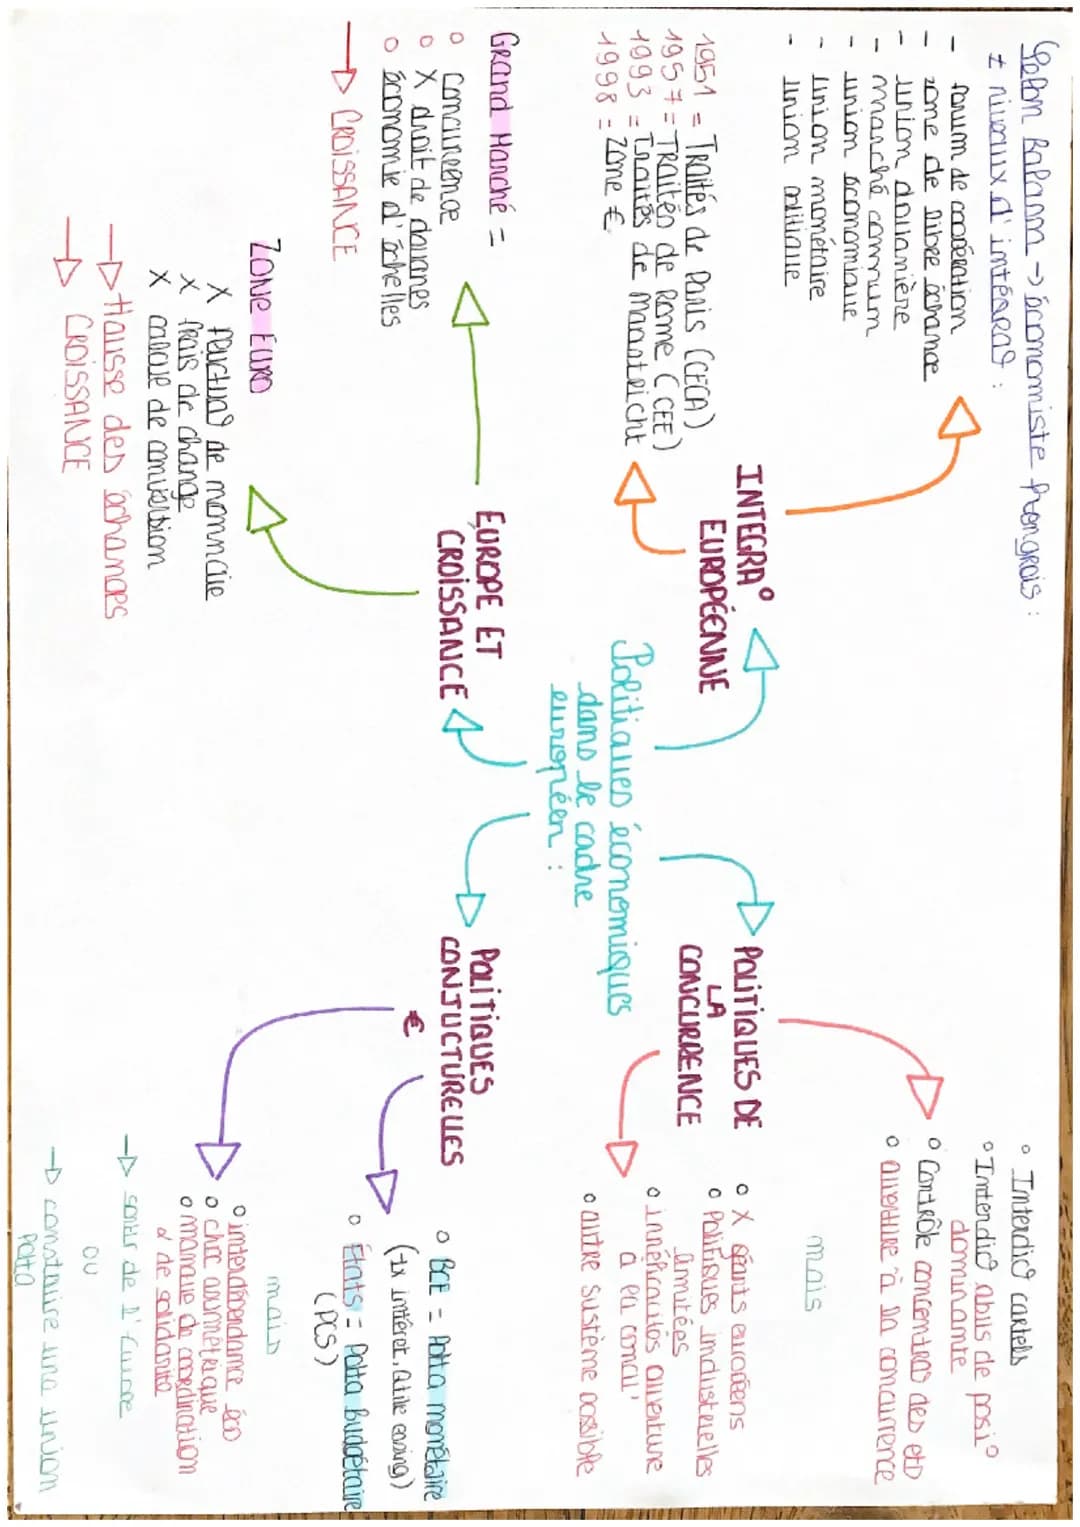 Politiques économiques
dans le cadre
européen :
INTEGRA°
EUROPÉENNE
Balann → économiste hongrois :
± niveaux d'intégrao :
- forum de coopération
- zone de libre échange
- union douanière
- marché commun
- union économique
- Union monétaire
- Union politique
1951 = Traités de Paris (CECA)
1957 = Traités de Rome (CEE)
1993 = Traités de Maastricht
1998 = Zone €
EUROPE ET
CROISSANCE
Grand Marché =
o Concurrence
o X droit de douanes
o économie d'échelles
→ CROISSANCE
ZONE EURO
X fluctuao de monnaie
X frais de change
X calcule de conversion
→ Hausse des échanges
→ CROISSANCE
POLITIQUES DE
LA
CONCURRENCE
o Interdico cartels
o Interdico abus de posi°
dominante
o Contrôle concentrao des etp
o ouverture à la concurrence
mais
o X géants européens
o Politiques industrielles
limitées
o inefficacités ouverture
à la concu'
o autre système possible
POLITIQUES
CONJUCTURELLES
€
o BCE = Potta monétaire
(tx intéret, easing)
o États = Potta Budgétaire
(PCS)
mais
o interdépendance éco
o choc asymétrique
o manque de coordination
& de solidarité
→ sortir de l'Europe
ou
→ construire une union
Potta